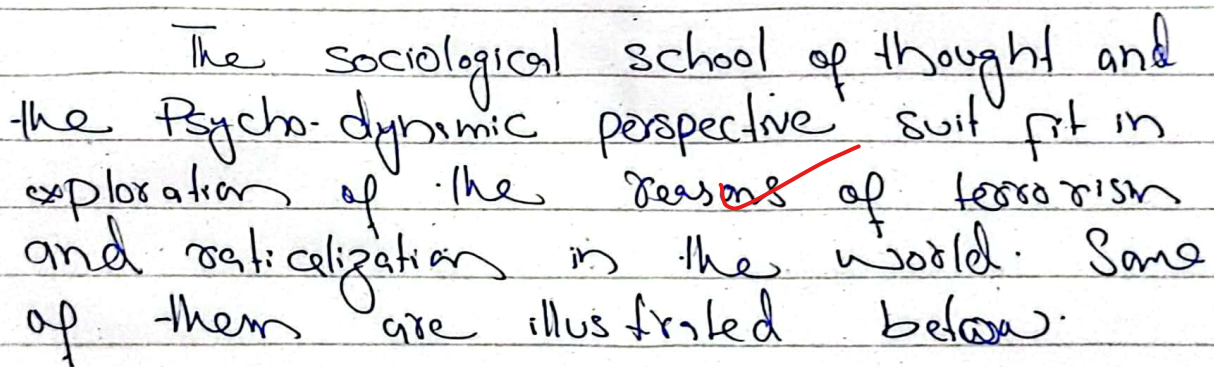 The sociological school of thought and
the Psycho-dynamic perspective suit fit in
exploration of the reasons of terrorism
and raticalization in the world. Some
of them are illustrated below.